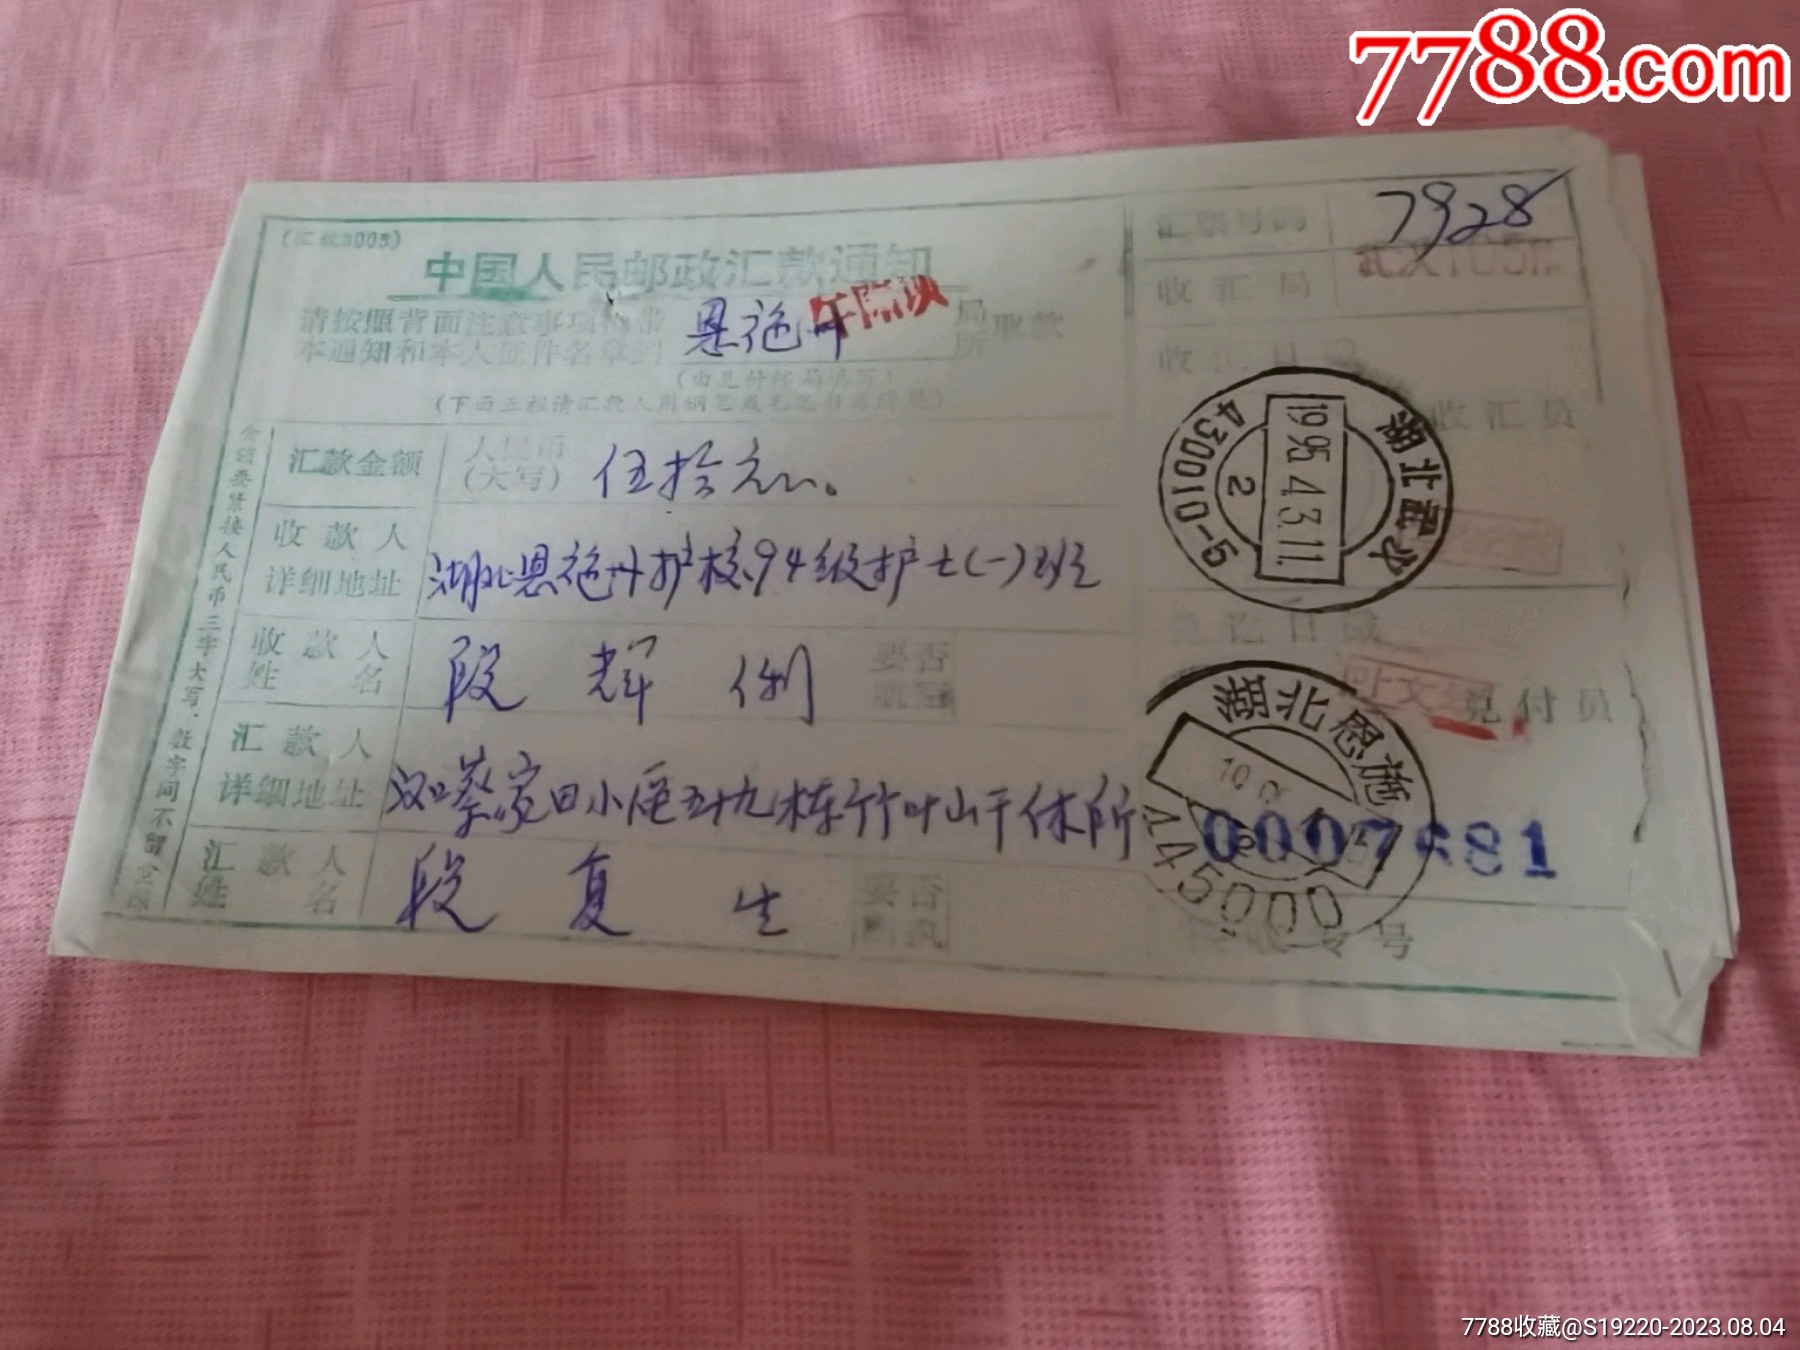 7788.com
中国人民邮政汇款通知
请按照背面注意事项携带
本通知和本人证件名章到
恩施州
局
所
取款
(下面五栏请汇款人用钢笔或毛笔书写清楚)
汇票号码
7928
收汇局
收汇员
汇款金额
人民币
(大写)
伍拾元
收款人
详细地址
湖北恩施州护校94级护士(一)班
收款人
姓名
段辉俐
要否
航空
汇款人
详细地址
汉口蔡家田小区五十九栋竹叶山干休所
汇款人
姓名
段复生
要否
金额要紧接人民币三字大写、数字间不留空隙
湖北武汉
1995.4.3.11
2
430010-5
兑付员
湖北恩施
445000
0007681
7788收藏@S19220-2023.08.04